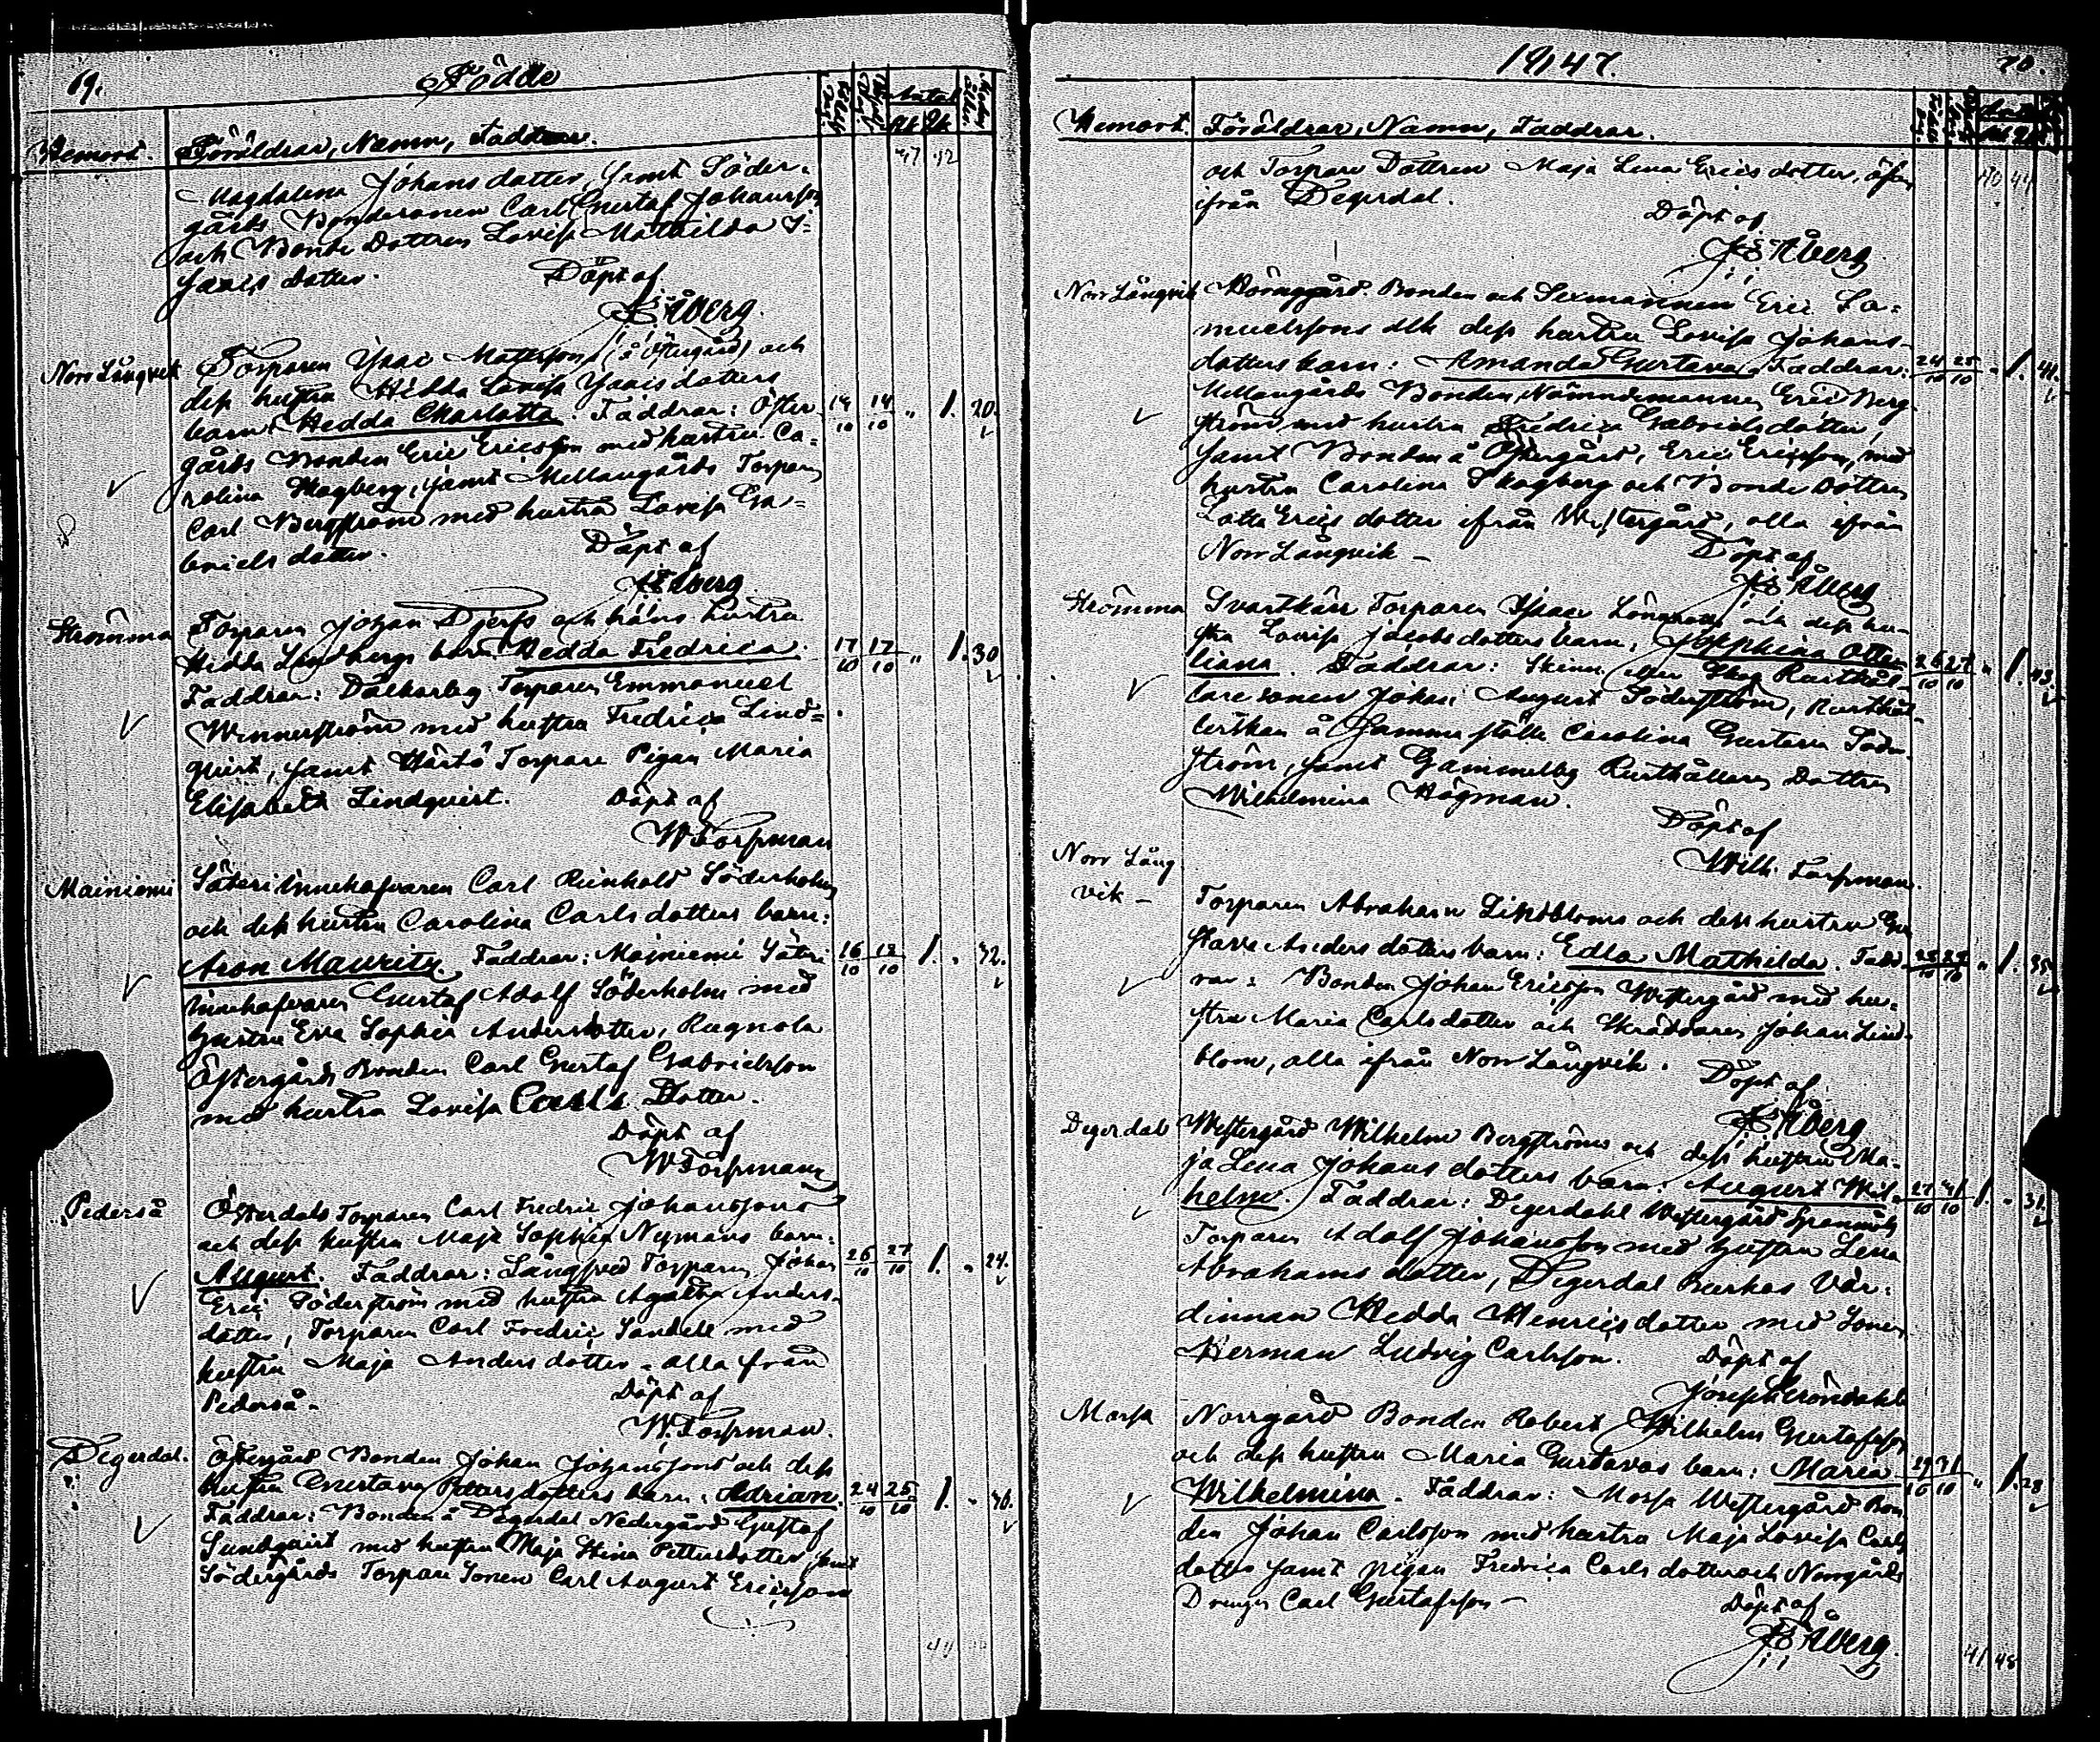 69. Födde
Hemort. Föräldrar, Namn, Faddrar.
Antal
37 42
Magdalena Johansdotter, samt Söder-
gårds Bondesonen Carl Gustaf Johansson
och Bonde Dottren Lovisa Mathilda I-
saacs dotter. Döpt af
Åberg.
Norr Långvik Torparen Isaac Matssons (å Östergård) och
dess hustru Hedda Lovisa Isaacs dotters
barn: Hedda Charlotta. Faddrar: Öster- 14/10 14/10 " 1. 20.
gårds Bonden Eric Ericsson med hustru Ca-
rolina Skogberg, samt Mellangårds Torparen
Carl Bergström med hustru Lovisa Ga-
briels dotter. Döpt af
Åberg
Strömma Torparen Johan Djerfs och häns hustru
Hedda Lindbergs barn Hedda Fredrica. 17/10 17/10 " 1. 30
Faddrar: Dalkarby Torparen Emmanuel
Winnerström med hustru Fredrica Lind-
quist, samt Härtö Torpare Pigan Maria
Elisabeth Lindquist. Döpt af
W Torpman
Mainiemi Säteri Innehafvaren Carl Reinhold Söderholms
och dess hustru Carolina Carlsdotters barn:
Aron Mauritz. Faddrar: Majniemi Säteri 16/10 18/10 1. " 32.
innehafvaren Gustaf Adolf Söderholm med
hustru Eva Sophia Andersdotter, Rugnola
Östergårds Bonden Carl Gustaf Gabrielsson
med hustru Lovisa Carls Dotter.
Döpt af
W Torpman
Pederså Österdals Torparen Carl Fredric Johanssons
och dess hustru Maja Sophia Nymans barn:
August. Faddrar: Långsved Torparen Johan 26/10 27/10 1. " 24.
Eric Söderström med hustru Agatha Anders-
dotter, Torparen Carl Fredric Sandell med
hustru Maja Anders dotter - alla från
Pederså. Döpt af
W. Torpman.
Degerdal. Östergård Bonden Johan Johanssons och dess
hustru Gustava Pettersdotters barn: Adrian. 24/10 25/10 1. " 36.
Faddrar: Bonden å Degerdal Nedergård Gustaf
Sundquist med hustru Maja Stina Pettersdotter, samt
Södergårds Torpare Sonen Carl August Ericsson
1847. 70.
Hemort. Föräldrar, Namn, Faddrar.
och Torpare Dottren Maja Lena Erics dotter, äfven
ifrån Degerdal.
Döpt af
Åberg
Norr Långvik Bonden och Sexmannen Eric Sa-
muelssons och dess hustru Lovisa Johans-
dotters barn: Amanda Gustava. Faddrar: 24/10 25/10 " 1. 41.
Mellangårds Bonden Nämndemannen Eric Berg-
ström med hustru Fredrica Gabrielsdotter,
samt Bonden å Östergård, Eric Ericsson, med
hustru Carolina Skogberg och Bonde Dottren
Lotta Erics dotter ifrån Westergård, alla ifrån
Norr Långvik - Döpt af
Åberg
Strömma Svartkärr Torparen Isaac och dess hu-
stru Lovisa Jacobsdotters barn: Josephina Otte-
liana. Faddrar: Rusthål- 26/10 27/10 " 1. 43.
lare sonen Johan August Söderström, Rusthål-
lerskan å samma ställe Carolina Gustava Söder-
ström, samt Gammelby Rusthållare Dottren
Wilhelmina Högman.
Döpt af
Wilh. Torpman.
Norr Lång
vik - Torparen Abraham Lindbloms och dess hustru Gu-
stava Anders dotters barn: Edla Mathilda. Fadd- 25/10 27/10 " 1. 35
rar: Bonden Johan Ericsson Westergård med hu-
stru Maria Carlsdotter och Skräddaren Johan Lind-
blom, alla ifrån Norr Långvik. Döpt af
Åberg
Degerdal Westergård Wilhelm Bergströms och dess hustru Ma-
ja Lena Johans dotters barn: August Wil- 27/10 31/10 1. " 31.
helm. Faddrar: Degerdahl Westergård
Torparen Adolf Johansson med hustru Lena
Abrahams dotter, Degerdal Backas Vär-
dinnan Hedda Henricsdotter med Sonen
Herman Ludvig Carlsson. Döpt af
Joseph Gröndahl
Morsa Norrgård Bonden Robert Wilhelm Gustafsson
och dess hustru Maria Gustavas barn: Maria 29/10 31/10 " 1. 28
Wilhelmina. Faddrar: Morsa Westergård Bon-
den Johan Carlsson med hustru Maja Lovisa Carls
dotter samt pigan Fredrica Carls dotter och Norrgårds
Drengen Carl Gustafsson - Döpt af
Åberg.
41 48